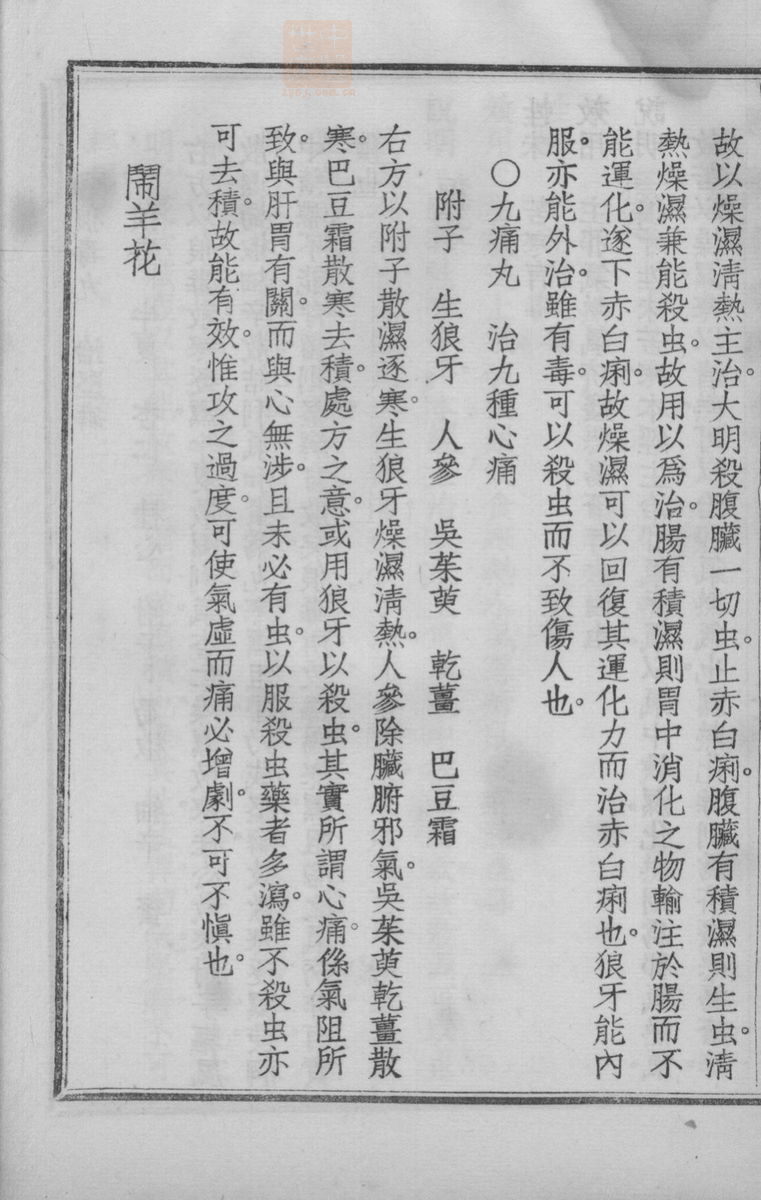 故以燥濕淸熱主治。大明殺腹臟一切虫。止赤白痢。腹臟有積濕則生虫。淸
熱燥濕兼能殺虫。故用以爲治。腸有積濕則胃中消化之物輸注於腸而不
能運化。遂下赤白痢。故燥濕可以回復其運化力而治赤白痢也。狼牙能內
服。亦能外治。雖有毒。可以殺虫而不致傷人也。
〇九痛丸　治九種心痛
附子　生狼牙　人參　吳茱萸　乾薑　巴豆霜
右方以附子散濕逐寒。生狼牙燥濕淸熱。人參除臟腑邪氣。吳茱萸乾薑散
寒。巴豆霜散寒去積。處方之意。或用狼牙以殺虫。其實所謂心痛。係氣阻所
致。與肝胃有關。而與心無涉。且未必有虫。以服殺虫藥者多瀉。雖不殺虫亦
可去積。故能有效。惟攻之過度。可使氣虛而痛必增劇。不可不愼也。
鬧羊花
中
世
zysj.com.cn